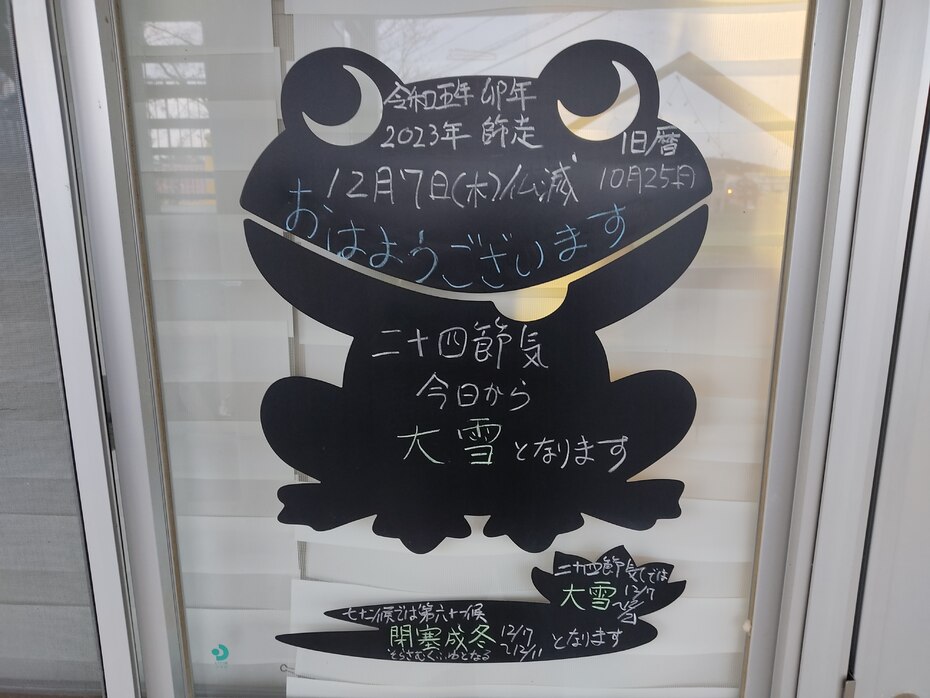 令和五年 卯年
2023年 師走
12月7日(木)仏滅
旧暦
10月25日
おはようございます
二十四節気
今日から
大雪となります
二十四節気では
大雪 12/7
七十二候では第六十一候
閉塞成冬 12/7
~12/11 となります
そらさむくふゆとなる